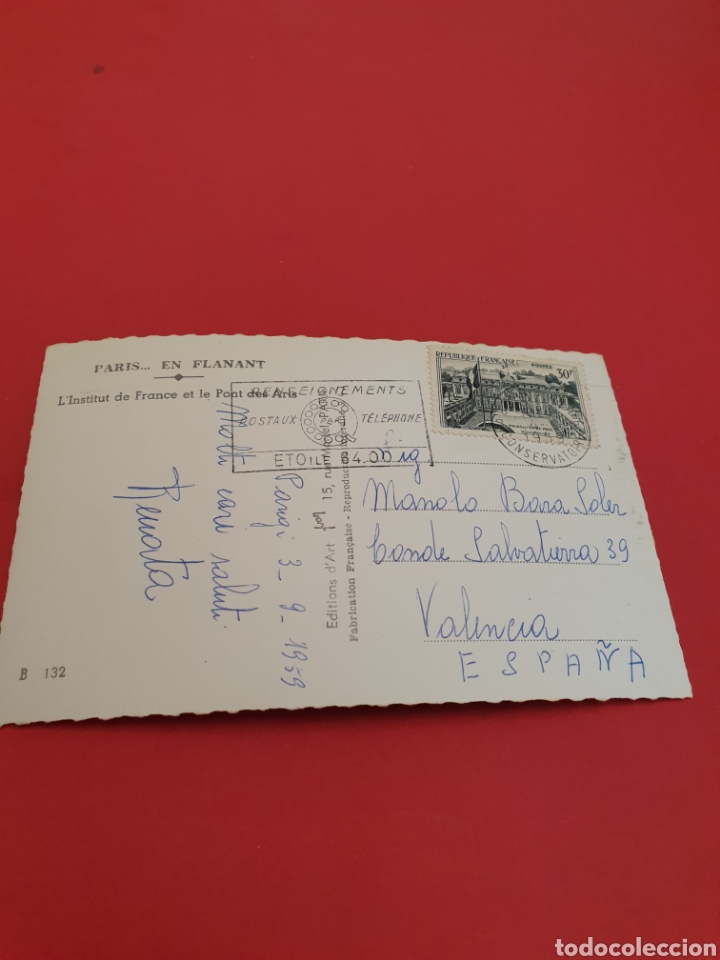 PARIS... EN FLANANT
L'Institut de France et le Pont des Arts
RENSEIGNEMENTS
POSTAUX TÉLÉPHONE
ETOILE 64.00
REPUBLIQUE FRANÇAISE POSTES
30F
CONSERVATOIRE
Parigi 3-9-1959
Molti cari saluti
Renata
Editions d'Art 15, rue
Fabrication Française - Reproduction
Sig
Manolo Bara Soler
Conde Salvatierra 39
Valencia
ESPAÑA
B 132
todocoleccion